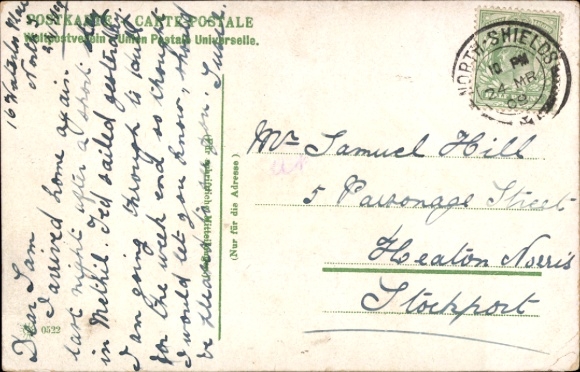 POSTKARTE CARTE POSTALE
Weltpostverein Union Postale Universelle.
16 Waterloo Place
North
Dear Sam
I arrived home again
last night after a short stay
in Methil. Ted sailed yesterday.
I am going through to
for the week end so thought
I would let you know, shall
be pleased to see you.
(Nur für die Adresse)
0522
NORTH-SHIELDS
10 PM
24 MR
09
Mr Samuel Hill
5 Parsonage Street
Heaton Norris
Stockport